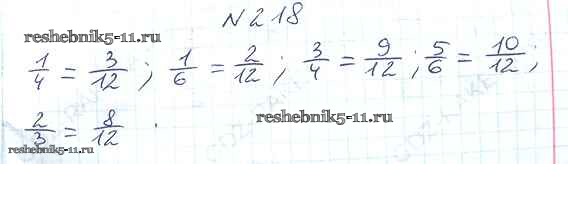 N 218
reshebnik5-11.ru
1/4 = 3/12 ; 1/6 = 2/12 ; 3/4 = 9/12 ; 5/6 = 10/12 ;
2/3 = 8/12 .
reshebnik5-11.ru
reshebnik5-11.ru